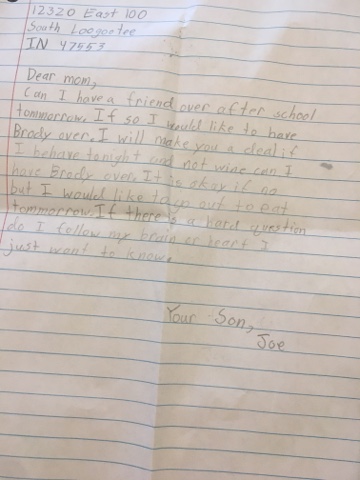 12320 East 100
South Loogootee
IN 47553
Dear mom,
Can I have a friend over after school
tommorrow. If so I would like to have
Brody over. I will make you a deal if
I behave tonight and not wine can I
have Brody over. It is okay if no
but I would like to go out to eat
tommorrow. If there's a hard question
do I follow my brain or heart I
just want to know.
Your Son,
Joe